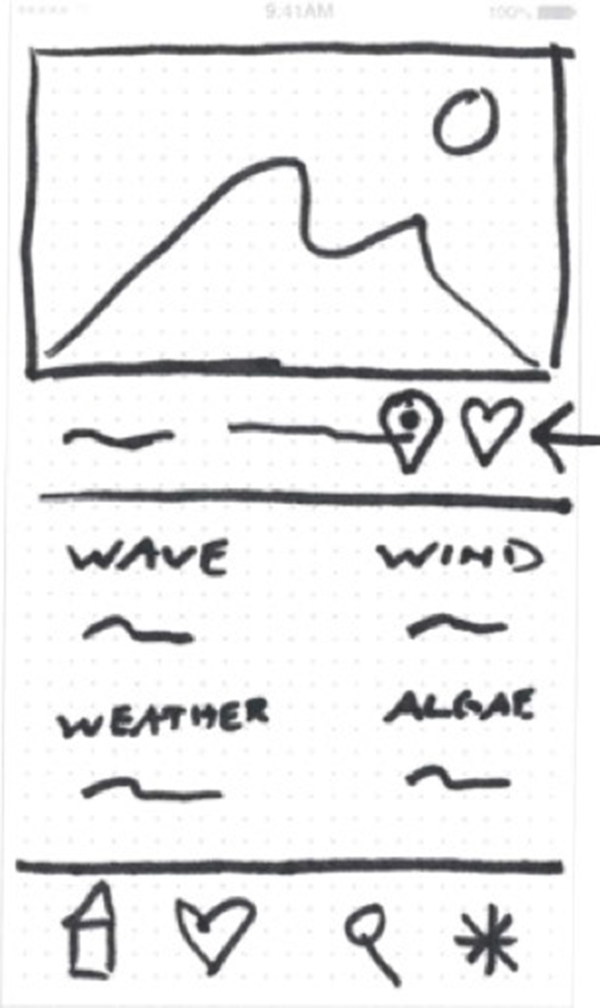 9:41AM 100%
WAVE WIND
WEATHER ALGAE